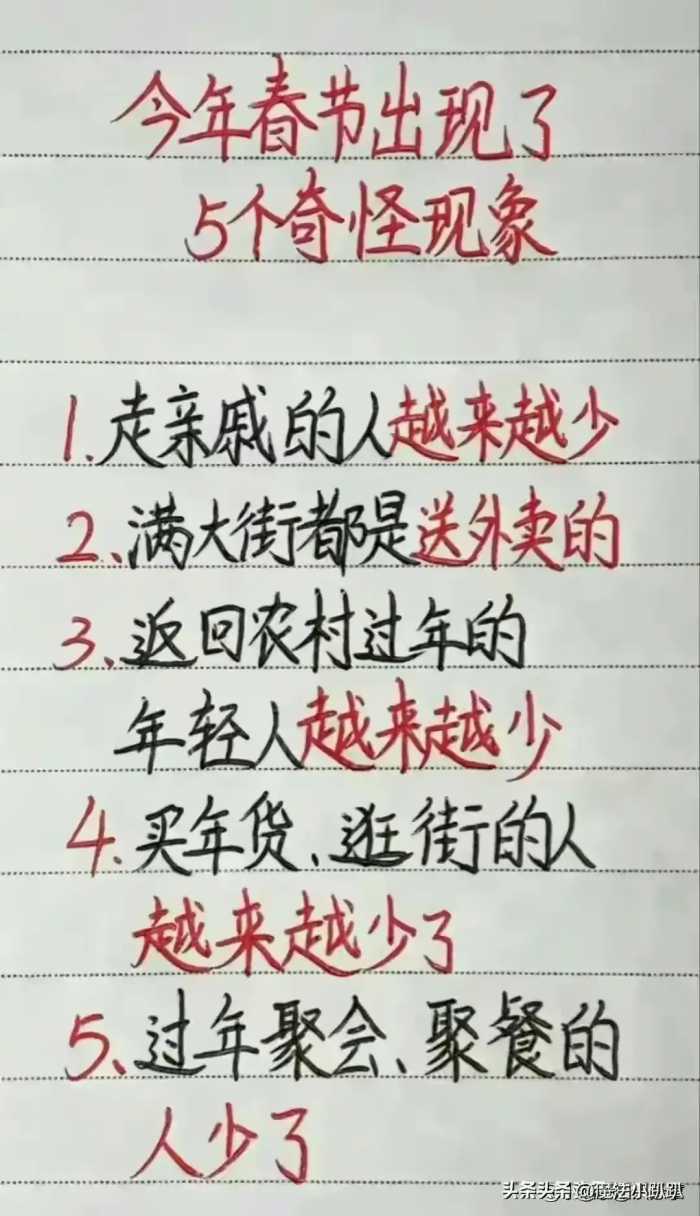 今年春节出现了
5个奇怪现象
1.走亲戚的人越来越少
2、满大街都是送外卖的
3、返回农村过年的
年轻人越来越少
4.买年货、逛街的人
越来越少了
5、过年聚会、聚餐的
人少了